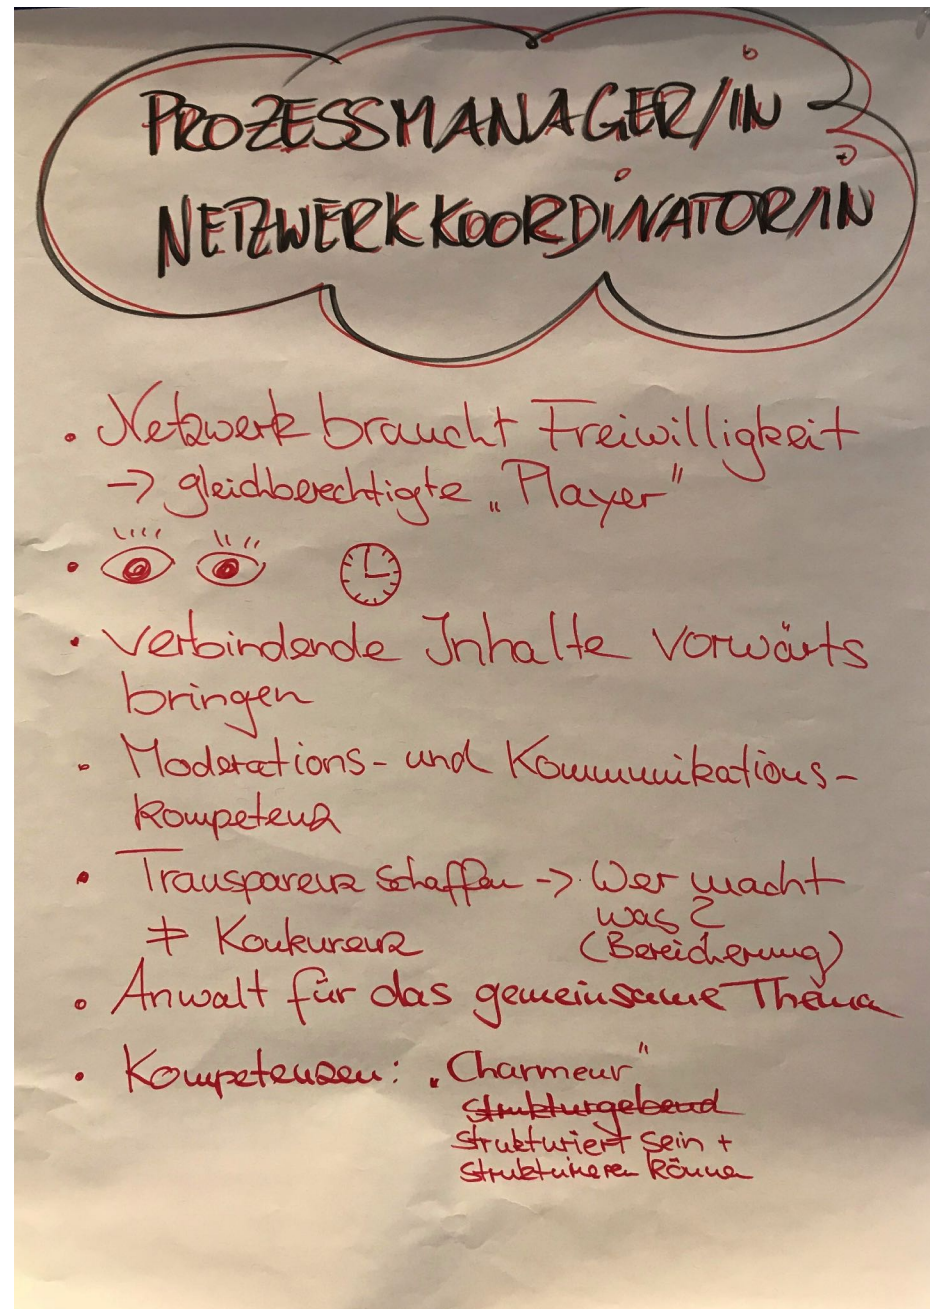 PROZESSMANAGER/IN
NETZWERKKOORDINATOR/IN
• Netzwerk braucht Freiwilligkeit
-> gleichberechtigte „Player"
•
• verbindende Inhalte vorwärts
bringen
• Moderations- und Kommunikations-
kompetenz
• Transparenz schaffen -> Wer macht
was?
≠ Konkurenz (Bereicherung)
• Anwalt für das gemeinsame Thema
• Kompetenzen: „Charmeur"
strukturgebend
strukturiert sein +
strukturieren können